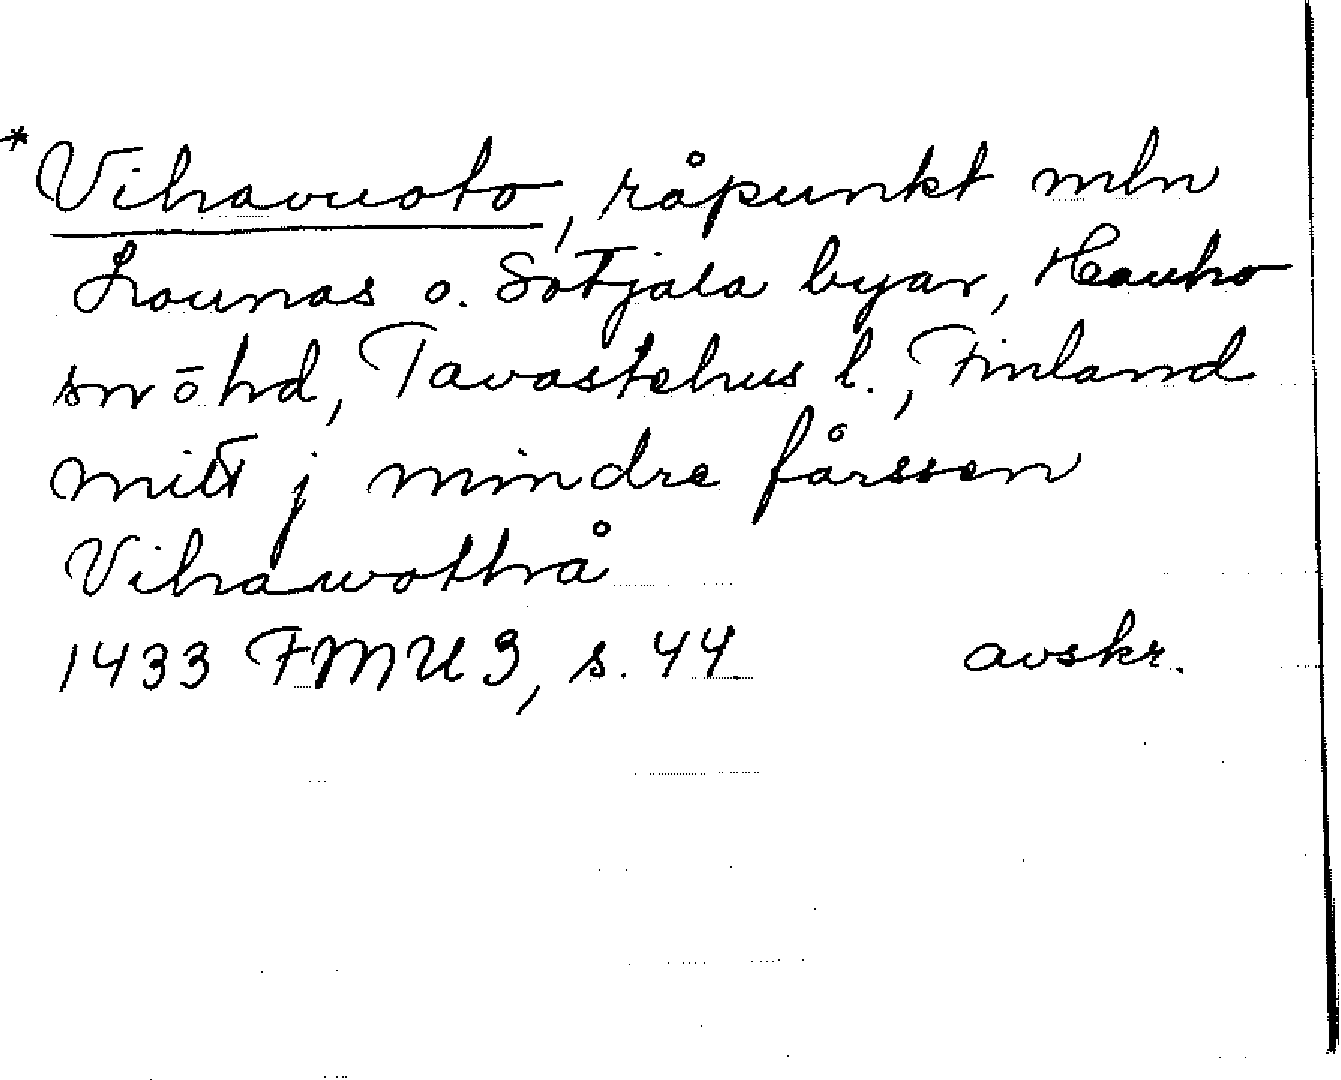 *Vihavuoto, råpunkt mln
Lounas o. Sotjala byar, Hauho
sn ō hd, Tavastehus l., Finland
mitt j mindre fårssen
Vihawothrå
1433 FMU 3, s. 44 avskr.